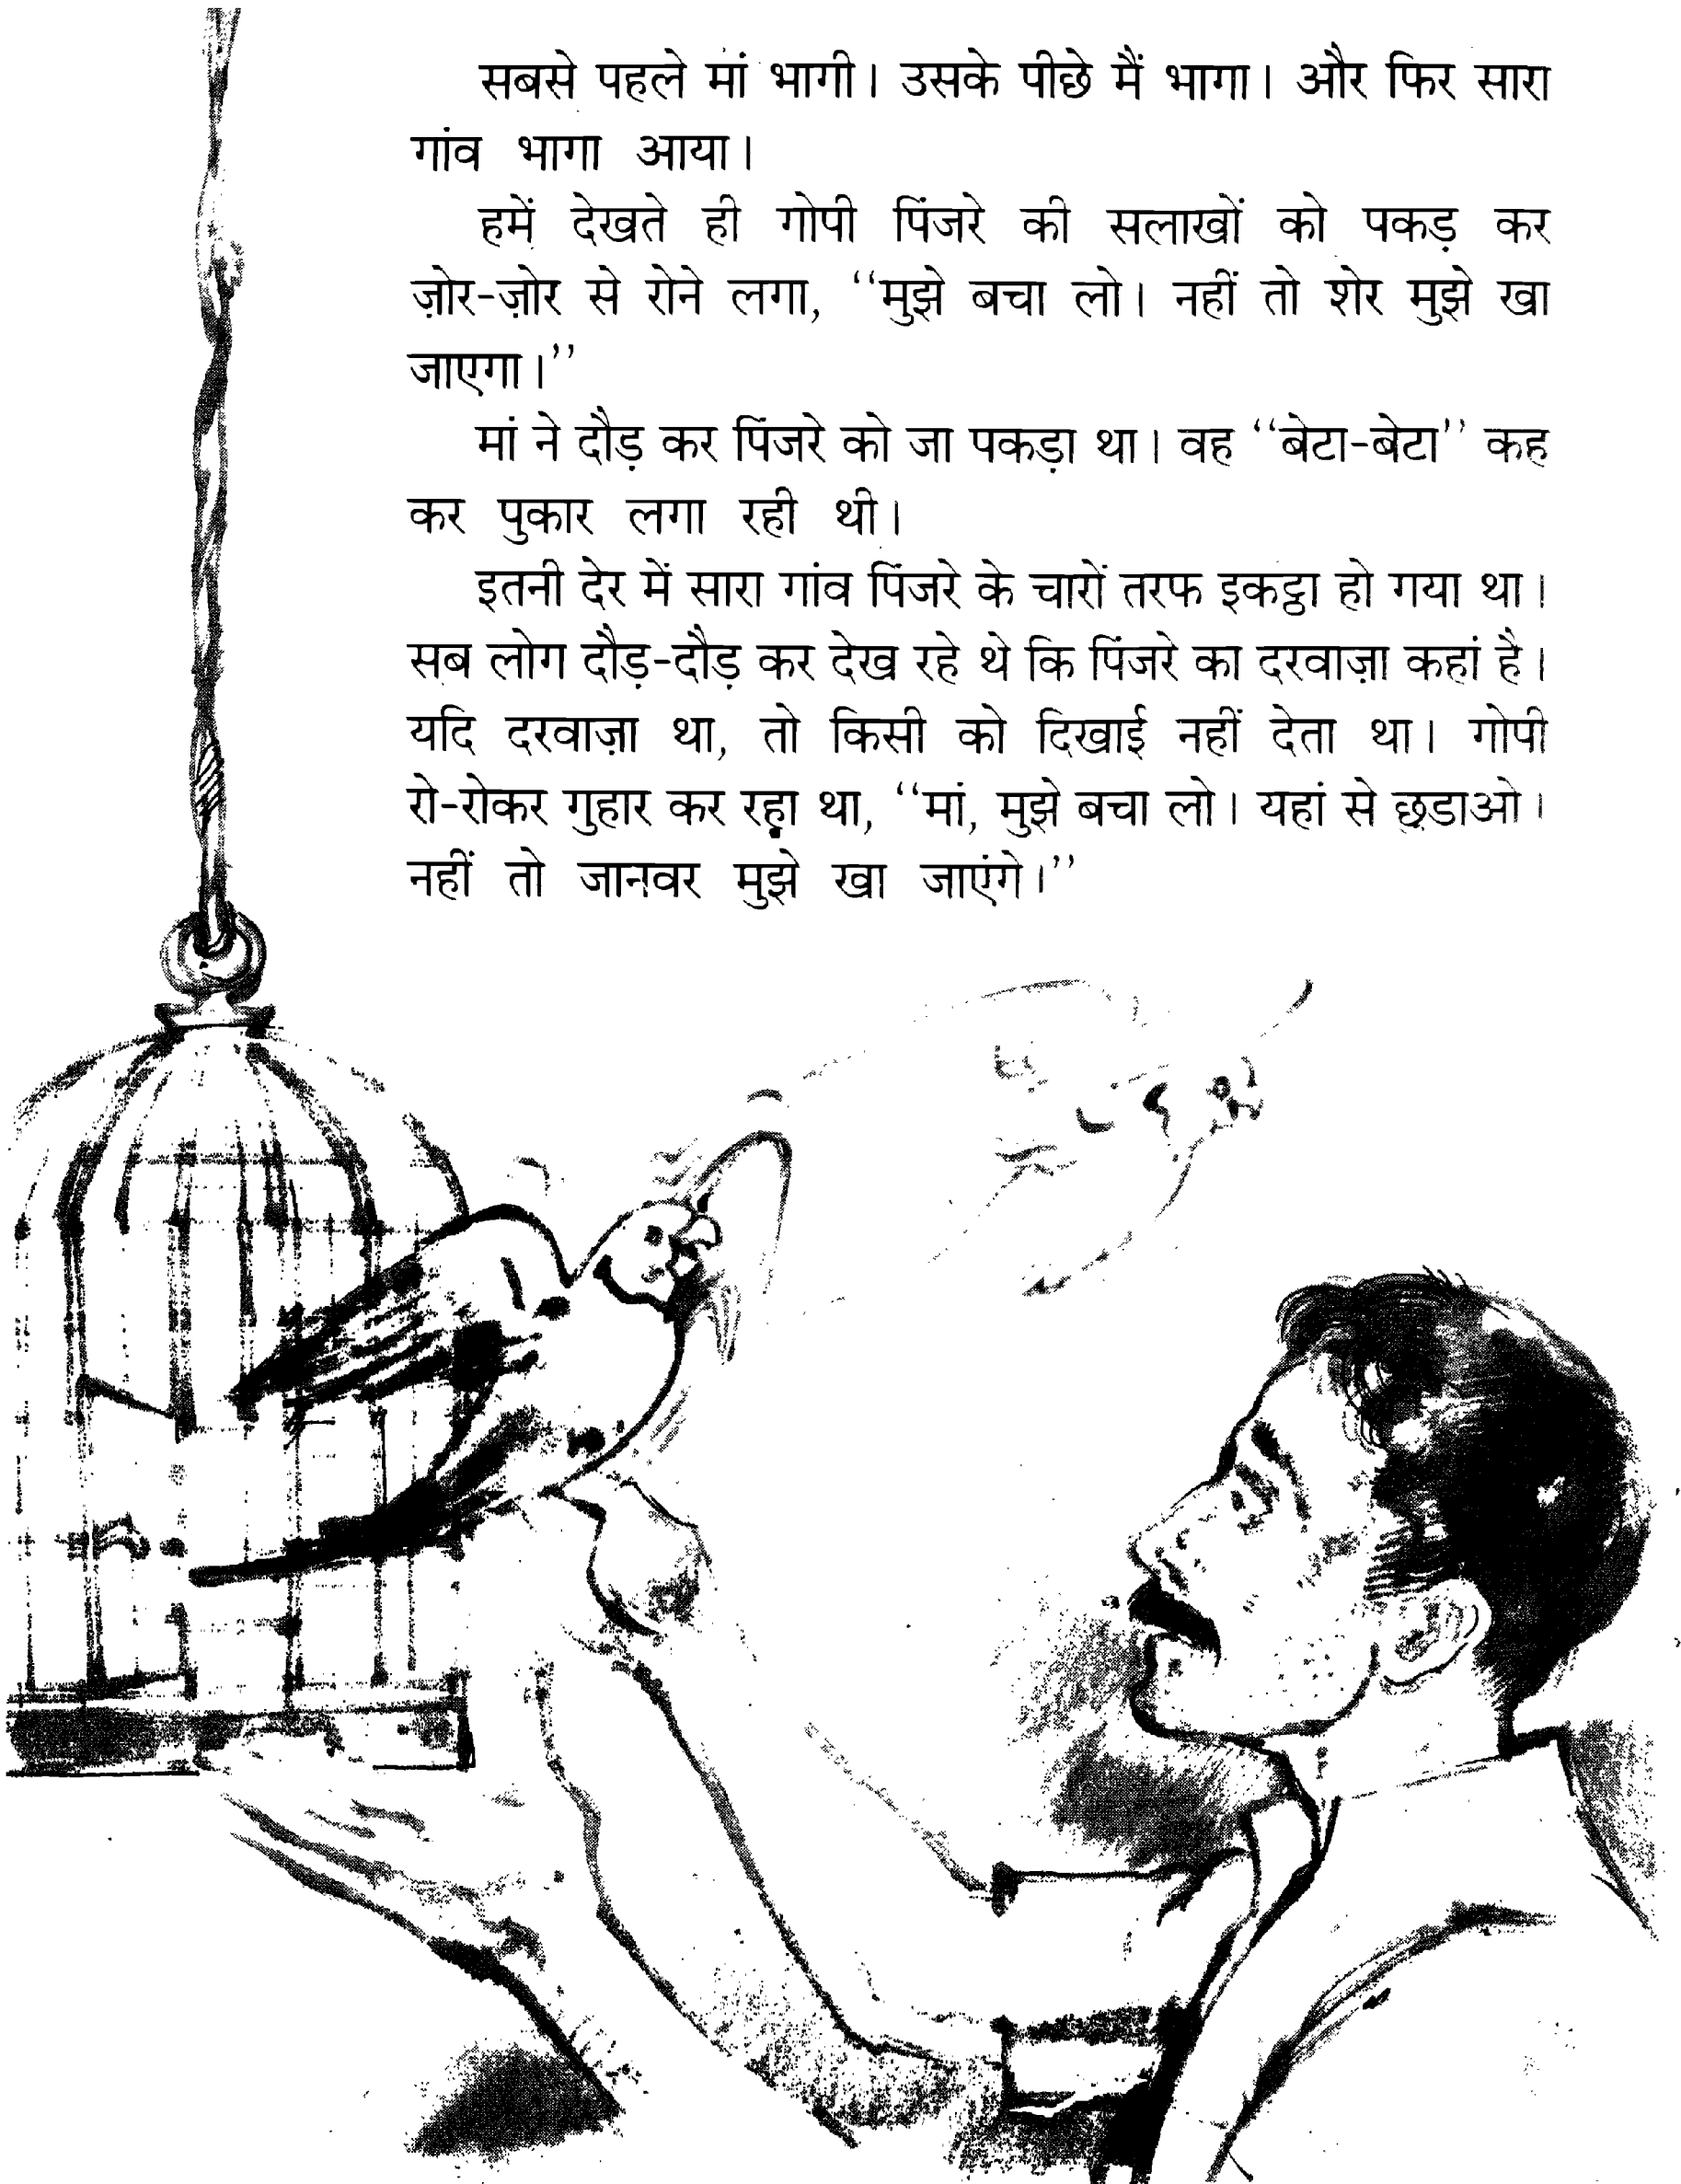 सबसे पहले मां भागी। उसके पीछे मैं भागा। और फिर सारा
गांव भागा आया।
हमें देखते ही गोपी पिंजरे की सलाखों को पकड़ कर
ज़ोर-ज़ोर से रोने लगा, “मुझे बचा लो। नहीं तो शेर मुझे खा
जाएगा।”
मां ने दौड़ कर पिंजरे को जा पकड़ा था। वह “बेटा-बेटा” कह
कर पुकार लगा रही थी।
इतनी देर में सारा गांव पिंजरे के चारों तरफ इकट्ठा हो गया था।
सब लोग दौड़-दौड़ कर देख रहे थे कि पिंजरे का दरवाज़ा कहां है।
यदि दरवाज़ा था, तो किसी को दिखाई नहीं देता था। गोपी
रो-रोकर गुहार कर रहा था, “मां, मुझे बचा लो। यहां से छुडाओ।
नहीं तो जानवर मुझे खा जाएंगे।”